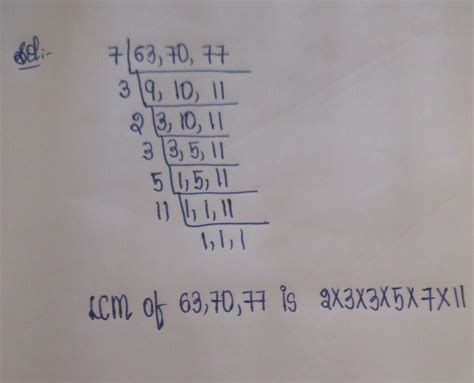 Sol:-
7 | 63, 70, 77
3 | 9, 10, 11
2 | 3, 10, 11
3 | 3, 5, 11
5 | 1, 5, 11
11 | 1, 1, 11
1, 1, 1
LCM of 63,70,77 is 2×3×3×5×7×11